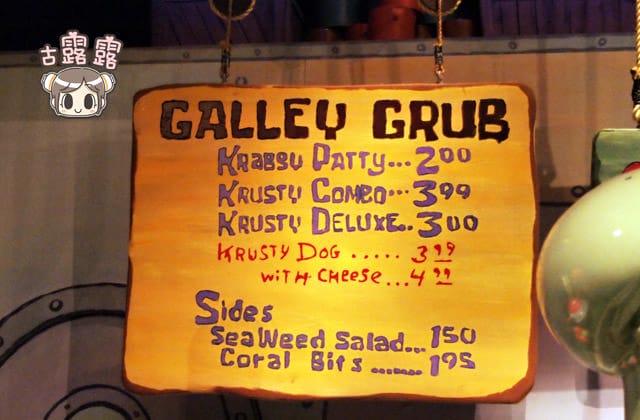 古露露
GALLEY GRUB
KRABBY PATTY...2.00
KRUSTY COMBO...3.99
KRUSTY DELUXE..3.00
KRUSTY DOG ..... 3.99
WITH CHEESE...4.99
Sides
SeaWeed Salad...1.50
Coral Bits ........1.95